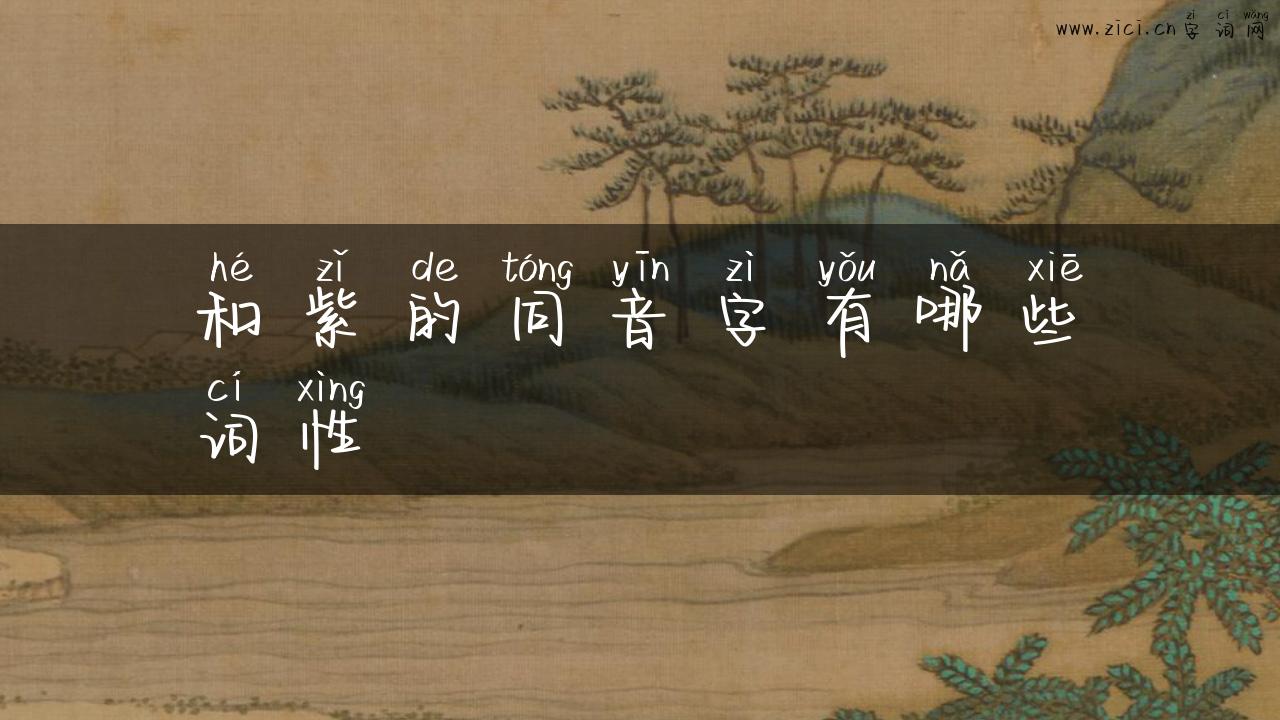 zì cí wǎng
www.zici.cn 字词网
hé zǐ de tóng yīn zì yǒu nǎ xiē
和紫的同音字有哪些
cí xìng
词性